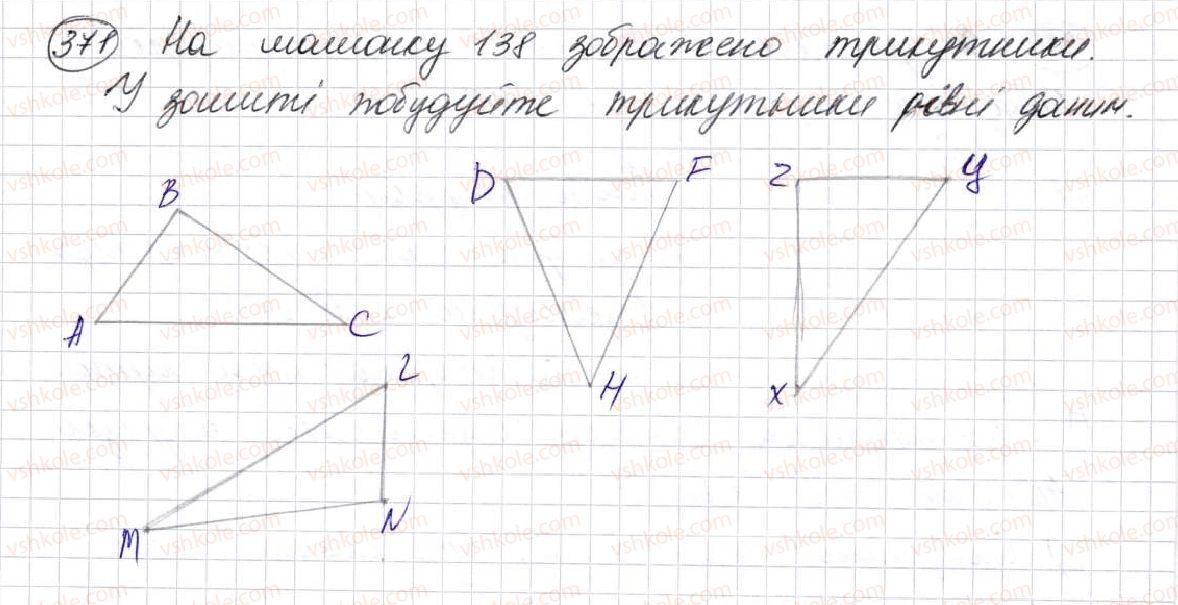 371 На малюнку 138 зображено трикутники.
У зошиті побудуйте трикутники рівні даним.
B
D F
Z У
A C
H
X
L
M N
vshkole.com